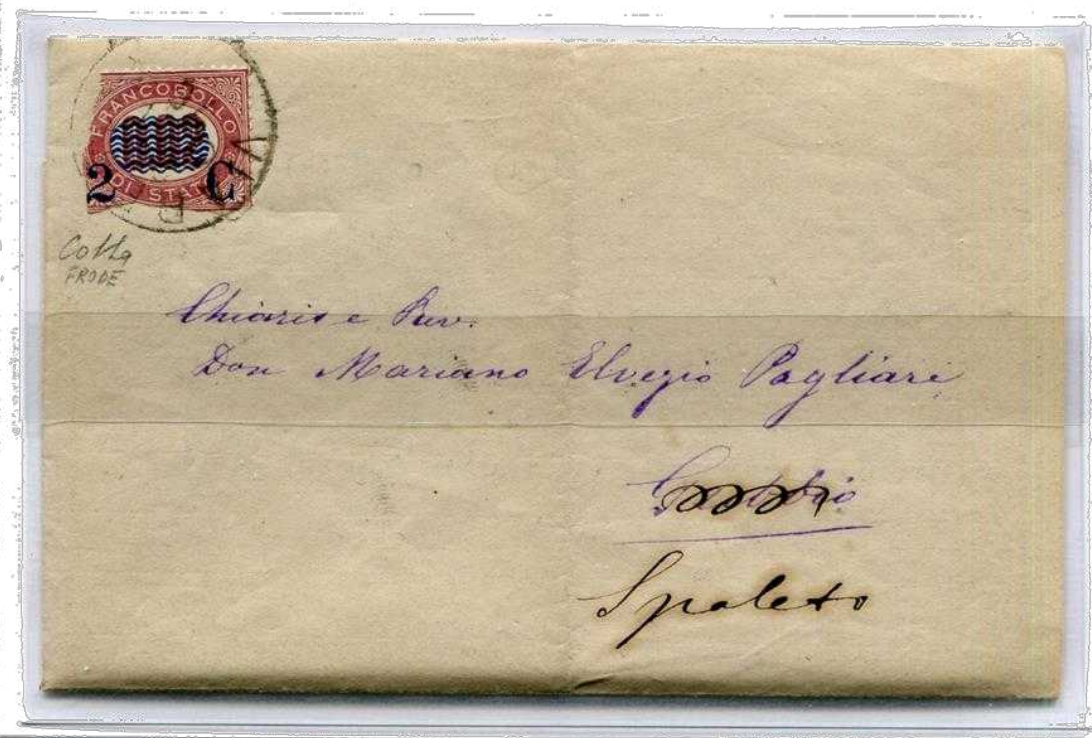 FRANCOBOLLO
DI STATO
2 C
Colla
FRODE
Chiaris e Rev.
Don Mariano Elvezio Pagliari
Gubbio
Spoleto